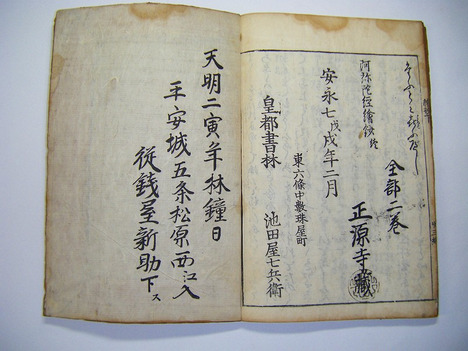 全部二巻
正源寺蔵
阿弥陀経繪鈔 終
安永七戊戌年二月
東六條中数珠屋町
皇都書林 池田屋七兵衛
天明二寅年林鐘日
平安城五条松原西江入
従錢屋新助下ス